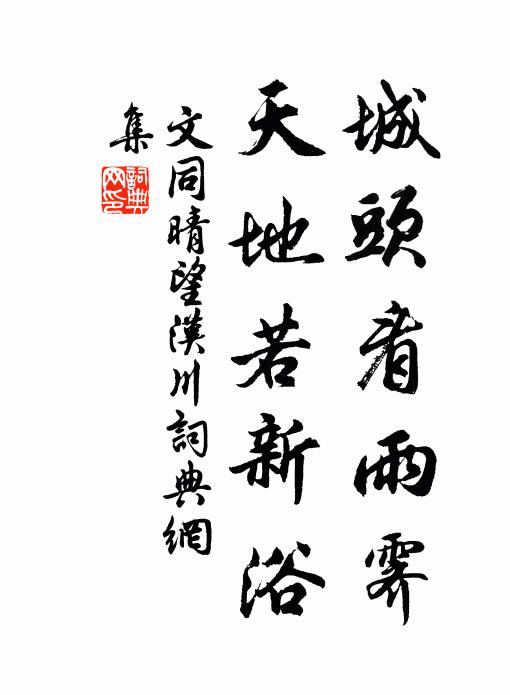 城頭看雨霽
天地若新浴
文同晴望漢川詞典網
集
詞典
网印